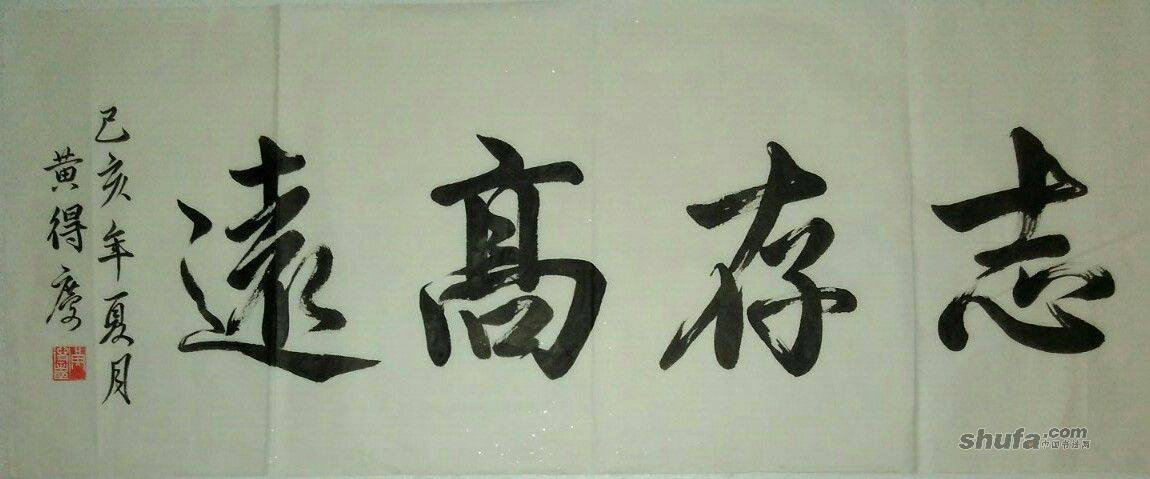 志存髙遠
己亥年夏月
黄得慶
shufa.com
中国书法网